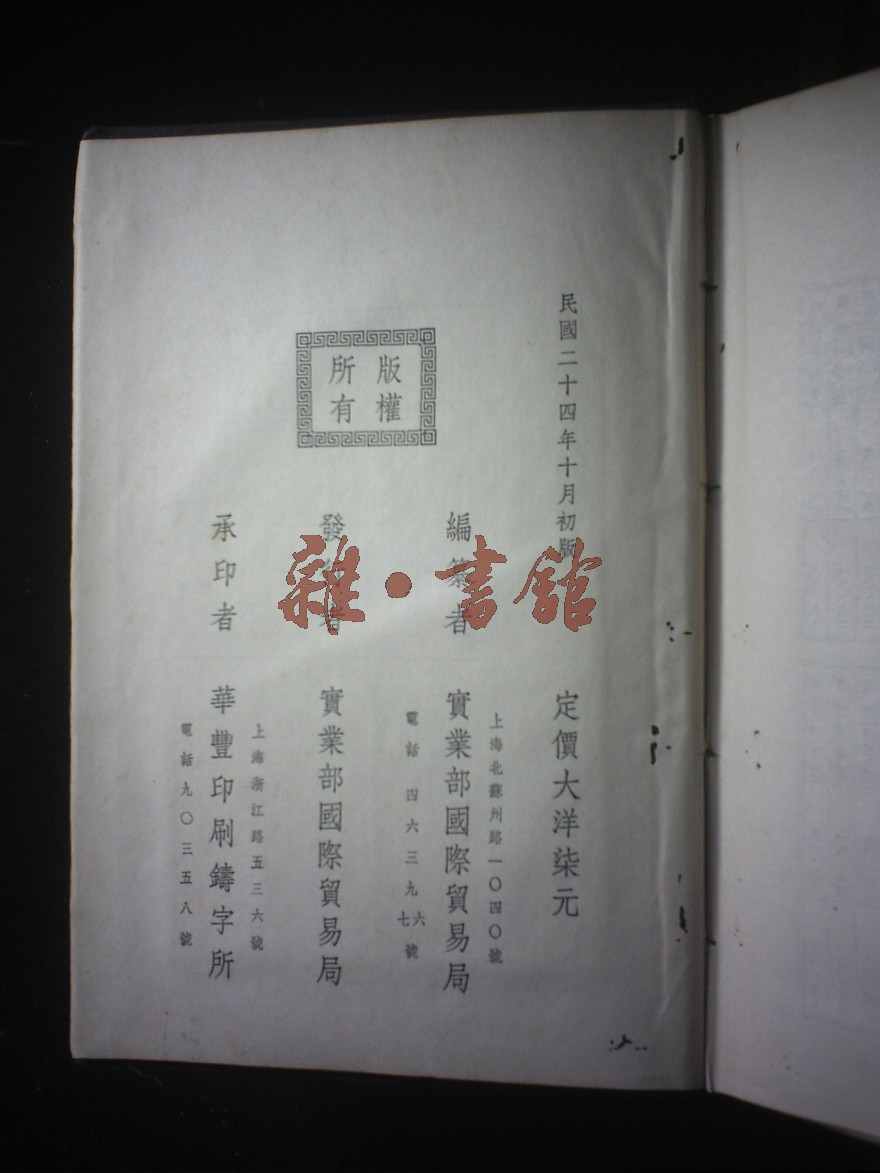 民國二十四年十月初版
定價大洋柒元
版權
所有
上海北蘇州路一〇四〇號
編纂者 實業部國際貿易局
電話 四六三九六七號
發行者 實業部國際貿易局
上海浙江路五三六號
承印者 華豐印刷鑄字所
電話九〇三五八號
雜·書館